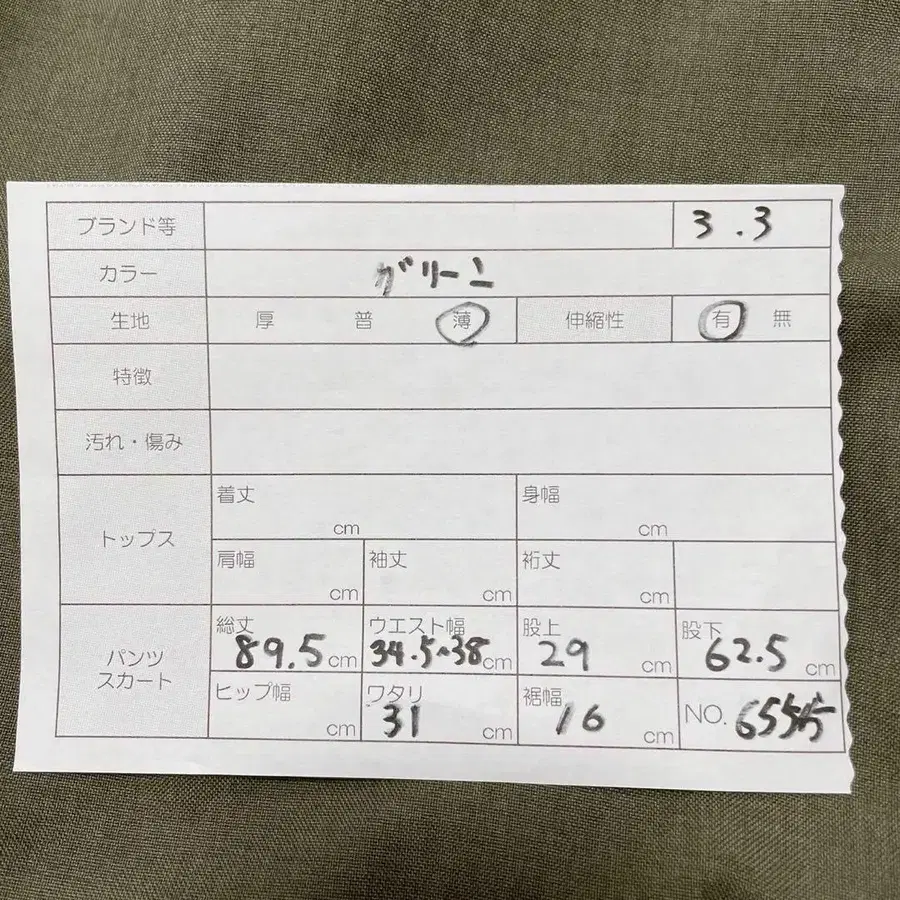 ブランド等 3.3
カラー グリーン
生地 厚 普 薄 伸縮性 有 無
特徴
汚れ・傷み
トップス
着丈 cm 身幅 cm
肩幅 cm 袖丈 cm 裄丈 cm
パンツ
スカート
総丈 89.5 cm ウエスト幅 34.5~38 cm 股上 29 cm 股下 62.5 cm
ヒップ幅 cm ワタリ 31 cm 裾幅 16 cm NO.